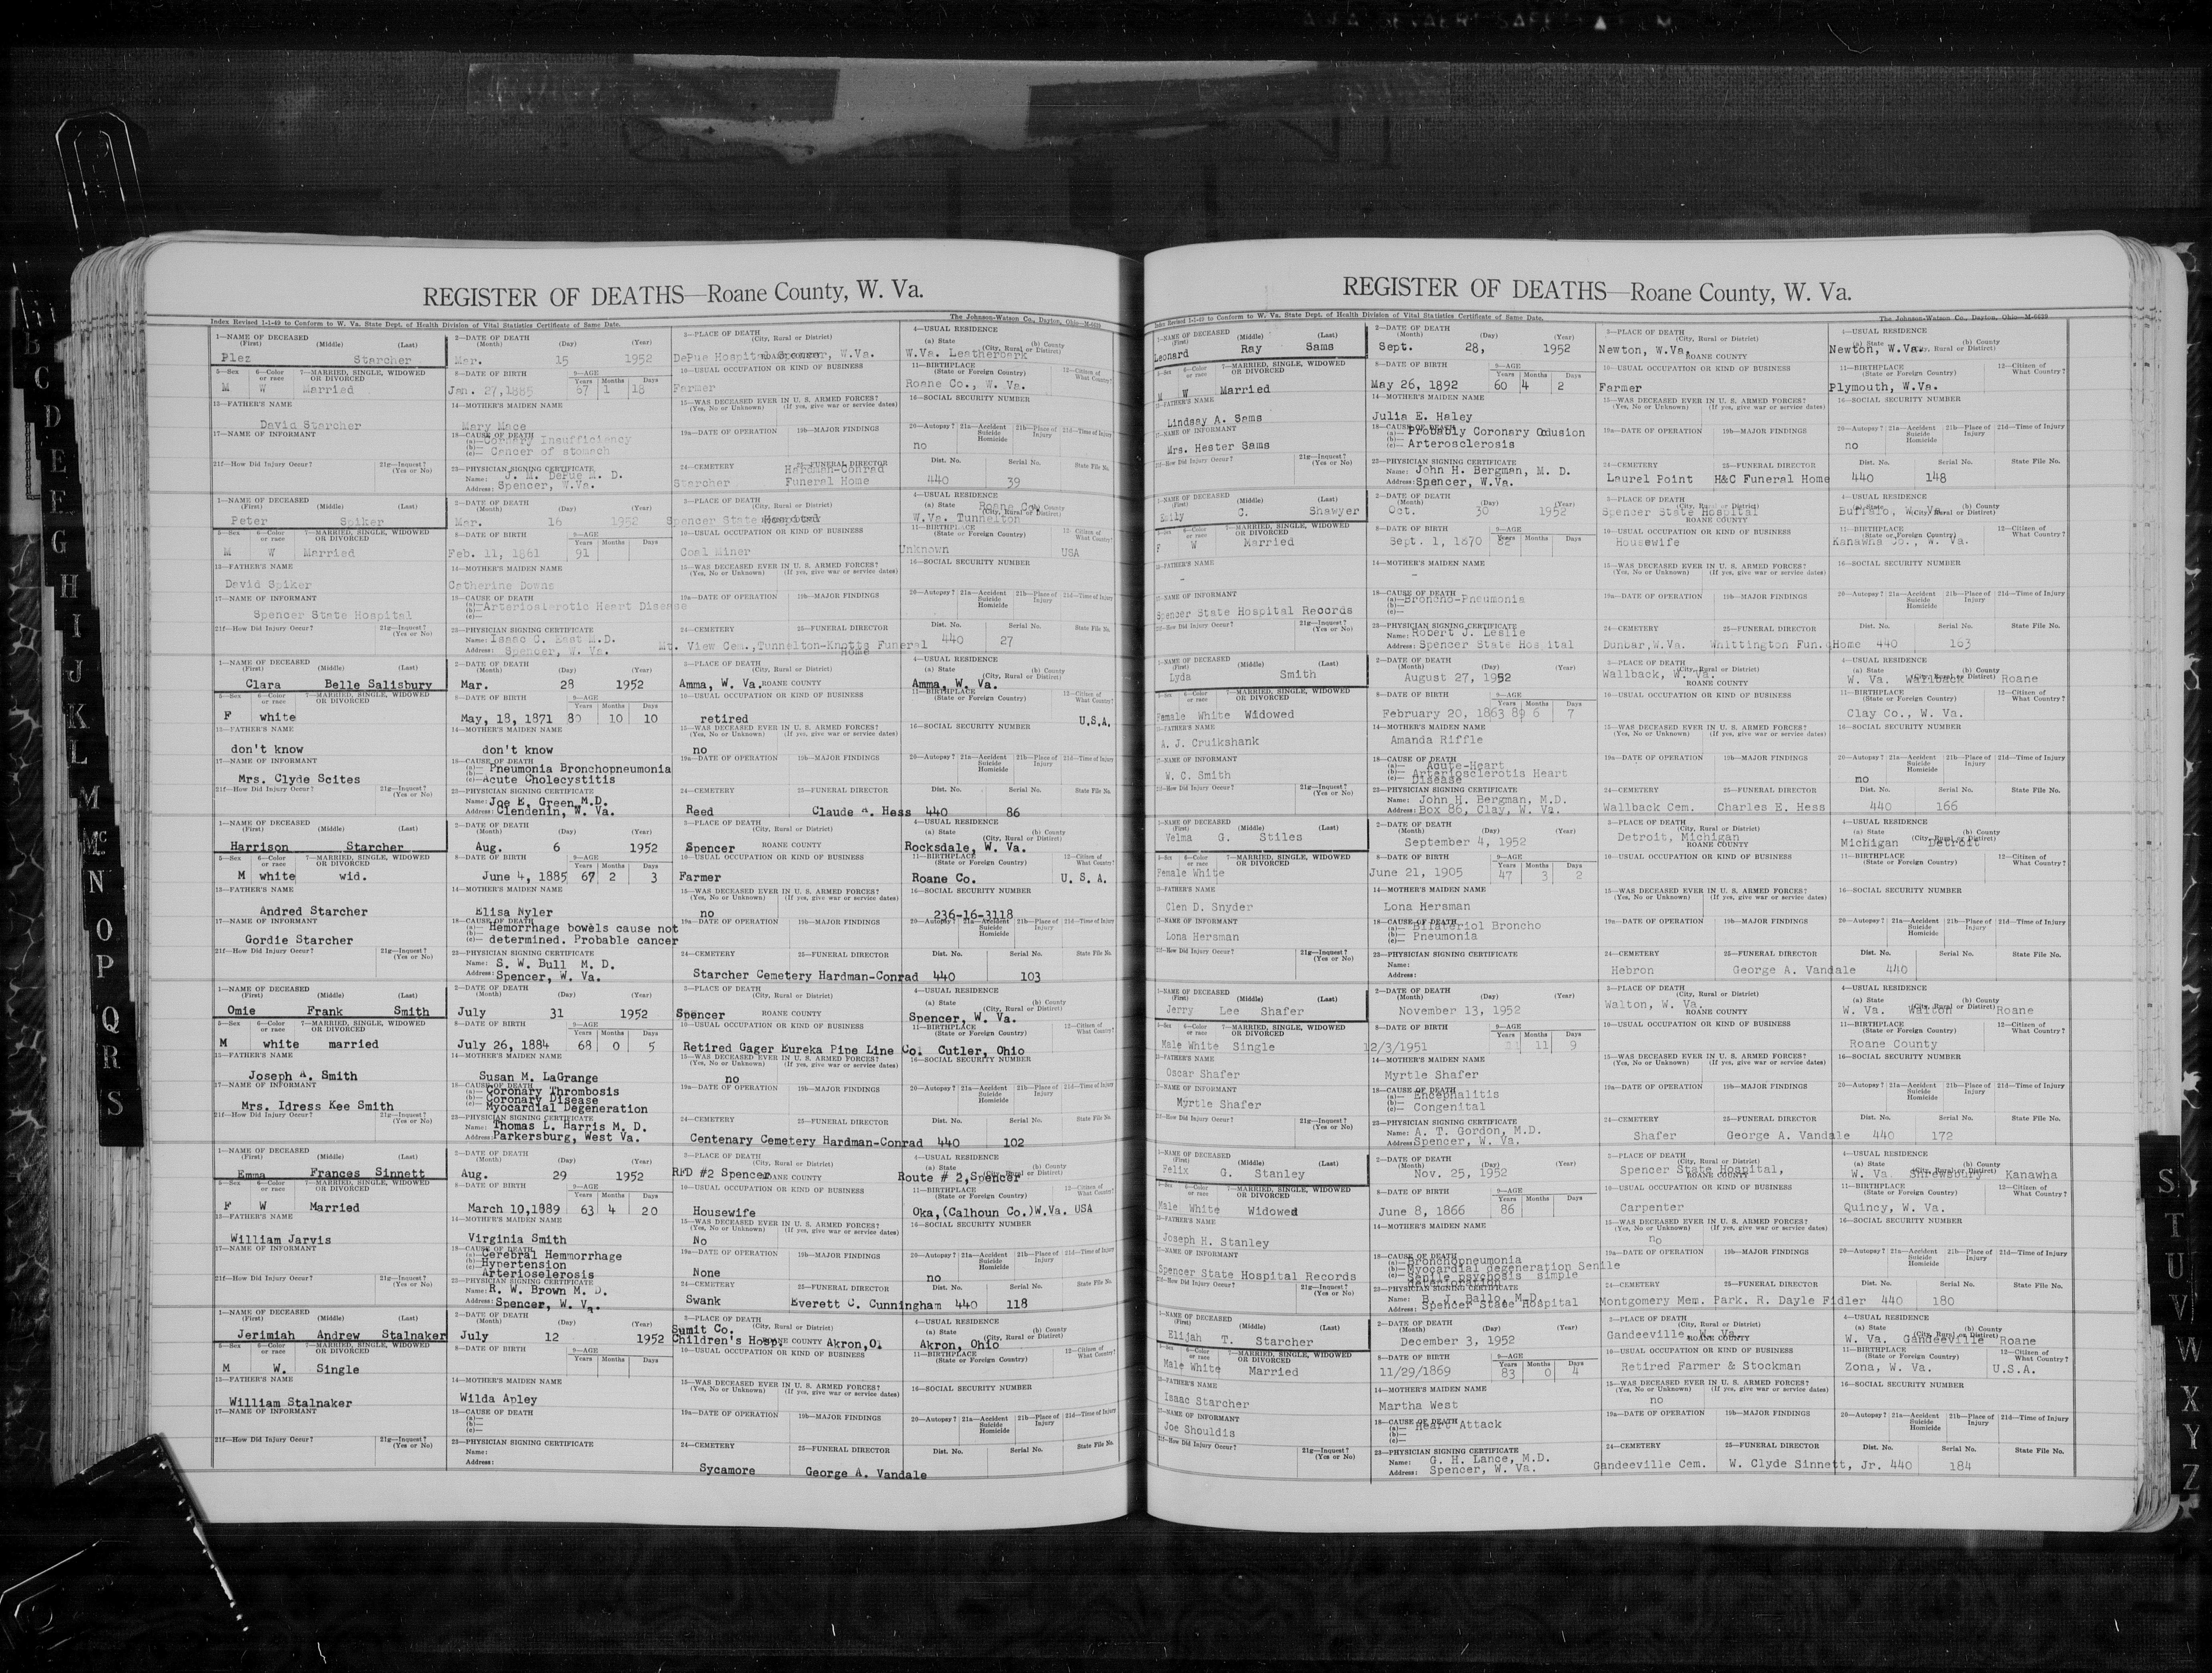 REGISTER OF DEATHS—Roane County, W. Va.
Index Revised 1-1-49 to Conform to W. Va. State Dept. of Health Division of Vital Statistics Certificate of Same Date. The Johnson-Watson Co., Dayton, Ohio—M-6639
1—NAME OF DECEASED (First) (Middle) (Last) 2—DATE OF DEATH (Month) (Day) (Year) 3—PLACE OF DEATH (City, Rural or District) ROANE COUNTY 4—USUAL RESIDENCE (a) State (b) County (City, Rural or District)
Plez Starcher Mar. 15 1952 DePue Hospital Spencer, W.Va. W.Va. Leatherbark
5—Sex 6—Color or race 7—MARRIED, SINGLE, WIDOWED OR DIVORCED 8—DATE OF BIRTH 9—AGE Years Months Days 10—USUAL OCCUPATION OR KIND OF BUSINESS 11—BIRTHPLACE (State or Foreign Country) 12—Citizen of What Country?
M W Married Jan. 27,1885 67 1 18 Farmer Roane Co., W. Va.
13—FATHER'S NAME 14—MOTHER'S MAIDEN NAME 15—WAS DECEASED EVER IN U. S. ARMED FORCES? (Yes, No or Unknown) (If yes, give war or service dates) 16—SOCIAL SECURITY NUMBER
David Starcher Mary Mace
17—NAME OF INFORMANT 18—CAUSE OF DEATH (a)— (b)— (c)— 19a—DATE OF OPERATION 19b—MAJOR FINDINGS 20—Autopsy? 21a—Accident Suicide Homicide 21b—Place of Injury 21d—Time of Injury
Coronary Insufficiency
Cancer of stomach no
21f—How Did Injury Occur? 21g—Inquest? (Yes or No) 23—PHYSICIAN SIGNING CERTIFICATE Name: Address: 24—CEMETERY 25—FUNERAL DIRECTOR Dist. No. Serial No. State File No.
J. M. DePue M. D. Hardman-Conrad
Spencer, W.Va. Starcher Funeral Home 440 39
Peter Spiker Mar. 16 1952 Spencer State Hospital Roane Co. W.Va. Tunnelton
M W Married Feb. 11, 1861 91 Coal Miner Unknown USA
David Spiker Catherine Downs
Spencer State Hospital Arteriosclerotic Heart Disease
Isaac C. East M.D.
Spencer, W. Va. Mt. View Cem.,Tunnelton-Knotts Funeral Home 440 27
Clara Belle Salisbury Mar. 28 1952 Amma, W. Va. Amma, W. Va.
F white May, 18, 1871 80 10 10 retired U.S.A.
don't know don't know no
Mrs. Clyde Scites Pneumonia Bronchopneumonia
Acute Cholecystitis
Joe E. Green M.D.
Clendenin, W. Va. Reed Claude A. Hess 440 86
Harrison Starcher Aug. 6 1952 Spencer Rocksdale, W. Va.
M white wid. June 4, 1885 67 2 3 Farmer Roane Co. U. S. A.
Andred Starcher Elisa Nyler no 236-16-3118
Gordie Starcher Hemorrhage bowels cause not
determined. Probable cancer
S. W. Bull M. D.
Spencer, W. Va. Starcher Cemetery Hardman-Conrad 440 103
Omie Frank Smith July 31 1952 Spencer Spencer, W. Va.
M white married July 26, 1884 68 0 5 Retired Gager Eureka Pipe Line Co. Cutler, Ohio
Joseph A. Smith Susan M. LaGrange no
Mrs. Idress Kee Smith Coronary Thrombosis
Coronary Disease
Myocardial Degeneration
Thomas L. Harris M. D.
Parkersburg, West Va. Centenary Cemetery Hardman-Conrad 440 102
Emma Frances Sinnett Aug. 29 1952 RFD #2 Spencer Route # 2,Spencer
F W Married March 10,1889 63 4 20 Housewife Oka,(Calhoun Co.)W.Va. USA
William Jarvis Virginia Smith No
Cerebral Hemmorrhage
Hypertension
Arterioselerosis None no
R. W. Brown M. D.
Spencer, W. Va. Swank Everett C. Cunningham 440 118
Jerimiah Andrew Stalnaker July 12 1952 Sumit Co. Children's Hosp. Akron,O. Akron, Ohio
M W. Single
William Stalnaker Wilda Apley
Sycamore George A. Vandale
REGISTER OF DEATHS—Roane County, W. Va.
Index Revised 1-1-49 to Conform to W. Va. State Dept. of Health Division of Vital Statistics Certificate of Same Date. The Johnson-Watson Co., Dayton, Ohio—M-6639
Leonard Ray Sams Sept. 28, 1952 Newton, W.Va. Newton, W.Va.
M W Married May 26, 1892 60 4 2 Farmer Plymouth, W.Va.
Lindsay A. Sams Julia E. Haley
Mrs. Hester Sams Probably Coronary Oclusion
Arterosclerosis no
John H. Bergman, M. D.
Spencer, W.Va. Laurel Point H&C Funeral Home 440 148
Emily C. Shawyer Oct. 30 1952 Spencer State Hospital Buffalo, W. Va.
F W Married Sept. 1, 1870 82 Housewife Kanawha Co., W. Va.
- -
Spencer State Hospital Records Broncho-Pneumonia
Robert J. Leslie
Spencer State Hos ital Dunbar,W.Va. Whittington Fun. Home 440 163
Lyda Smith August 27, 1952 Wallback, W. Va. W. Va. Wallback Roane
Female White Widowed February 20, 1863 89 6 7 Clay Co., W. Va.
A. J. Cruikshank Amanda Riffle
W. C. Smith Acute-Heart
Arteriosclerotis Heart
Disease no
John H. Bergman, M.D.
Box 86, Clay, W. Va. Wallback Cem. Charles E. Hess 440 166
Velma G. Stiles September 4, 1952 Detroit, Michigan Michigan Detroit
Female White June 21, 1905 47 3 2
Clen D. Snyder Lona Hersman
Lona Hersman Bilateriol Broncho
Pneumonia
Hebron George A. Vandale 440
Jerry Lee Shafer November 13, 1952 Walton, W. Va. W. Va. Walton Roane
Male White Single 12/3/1951 11 9 Roane County
Oscar Shafer Myrtle Shafer
Myrtle Shafer Encephalitis
Congenital
A. T. Gordon, M.D.
Spencer, W. Va. Shafer George A. Vandale 440 172
Felix G. Stanley Nov. 25, 1952 Spencer State Hospital, W. Va. Shrewsbury Kanawha
Male White Widowed June 8, 1866 86 Carpenter Quincy, W. Va.
Joseph H. Stanley no
Spencer State Hospital Records Bronchopneumonia
Myocardial degeneration Senile
Senile psychosis simple
deterioration
B. J. Ballo, M.D.
Spencer State Hospital Montgomery Mem. Park. R. Dayle Fidler 440 180
Elijah T. Starcher December 3, 1952 Gandeeville, W. Va. W. Va. Gandeeville Roane
Male White Married 11/29/1869 83 0 4 Retired Farmer & Stockman Zona, W. Va. U.S.A.
Isaac Starcher Martha West no
Joe Shouldis Heart Attack
G. H. Lance, M.D.
Spencer, W. Va. Gandeeville Cem. W. Clyde Sinnett, Jr. 440 184
B
C
D
E
F
G
H
I
J
K
L
M
Mc
N
O
P
Q
R
S
S
T
U
V
W
X
Y
Z